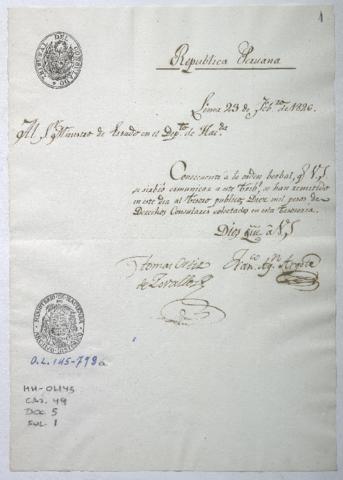 1
TRIBUNAL DEL CONSULADO
Republica Peruana
Lima 23 de Febro. de 1826.
Al Sr. Ministro de Estado en el Depto. de Hacda.
Consecuente á la orden berbal, q. V.S.
se sirbió comunicar a este Tribl. se han remitido
en este dia al tesoro publico, Diez mil pesos de
Derechos Consulares colectados en esta tesoreria.
Dios gue. á V.S.
Tomas Ortiz
de Zevallos
MINISTERIO DE HACIENDA
ARCHIVO HISTORICO
O.L. 145-798a
HH-OL145
CAJ. 49
DOC. 5
FOL. 1